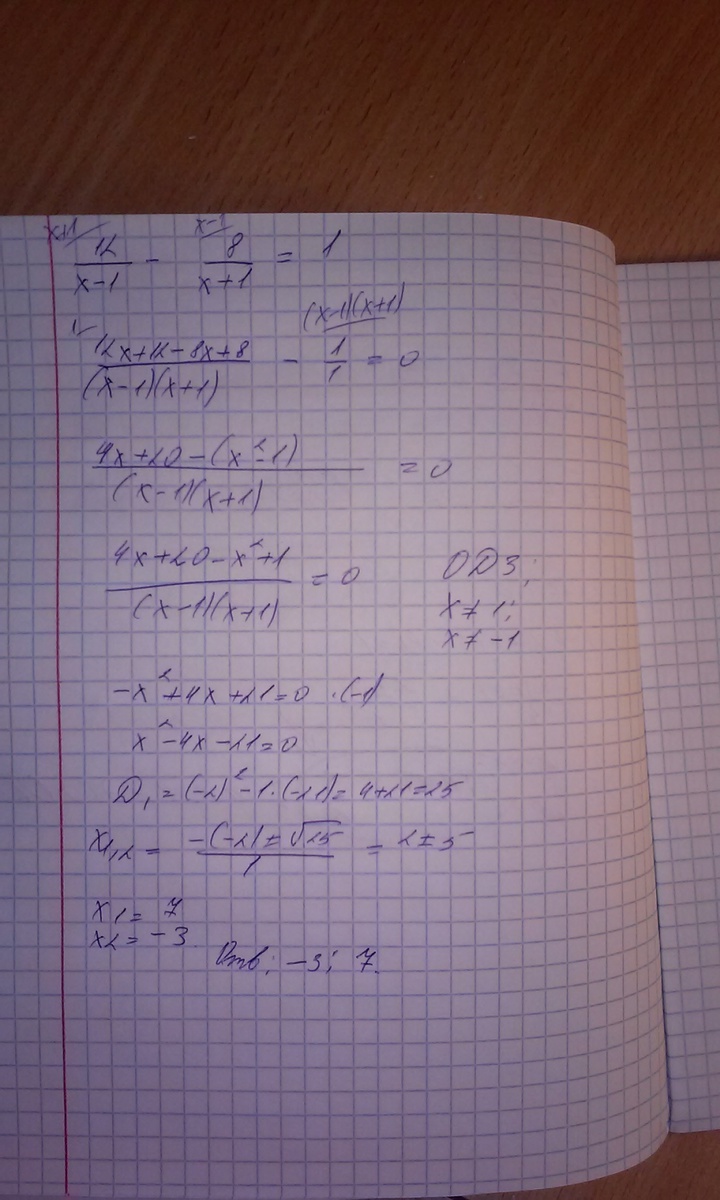 x+1/ 12/(x-1) - x-1/ 8/(x+1) = 1
(12x+12-8x+8)/((x-1)(x+1)) - (x-1)(x+1)/ 1/1 = 0
(4x+20-(x²-1))/((x-1)(x+1)) = 0
(4x+20-x²+1)/((x-1)(x+1)) = 0
ОДЗ;
x≠1;
x≠-1
-x²+4x+21=0 ·(-1)
x²-4x-21=0
D₁=(-2)²-1·(-21)=4+21=25
x₁,₂ = (-(-2)±√25)/1 = 2±5
x₁= 7
x₂=-3
Отв: -3; 7.